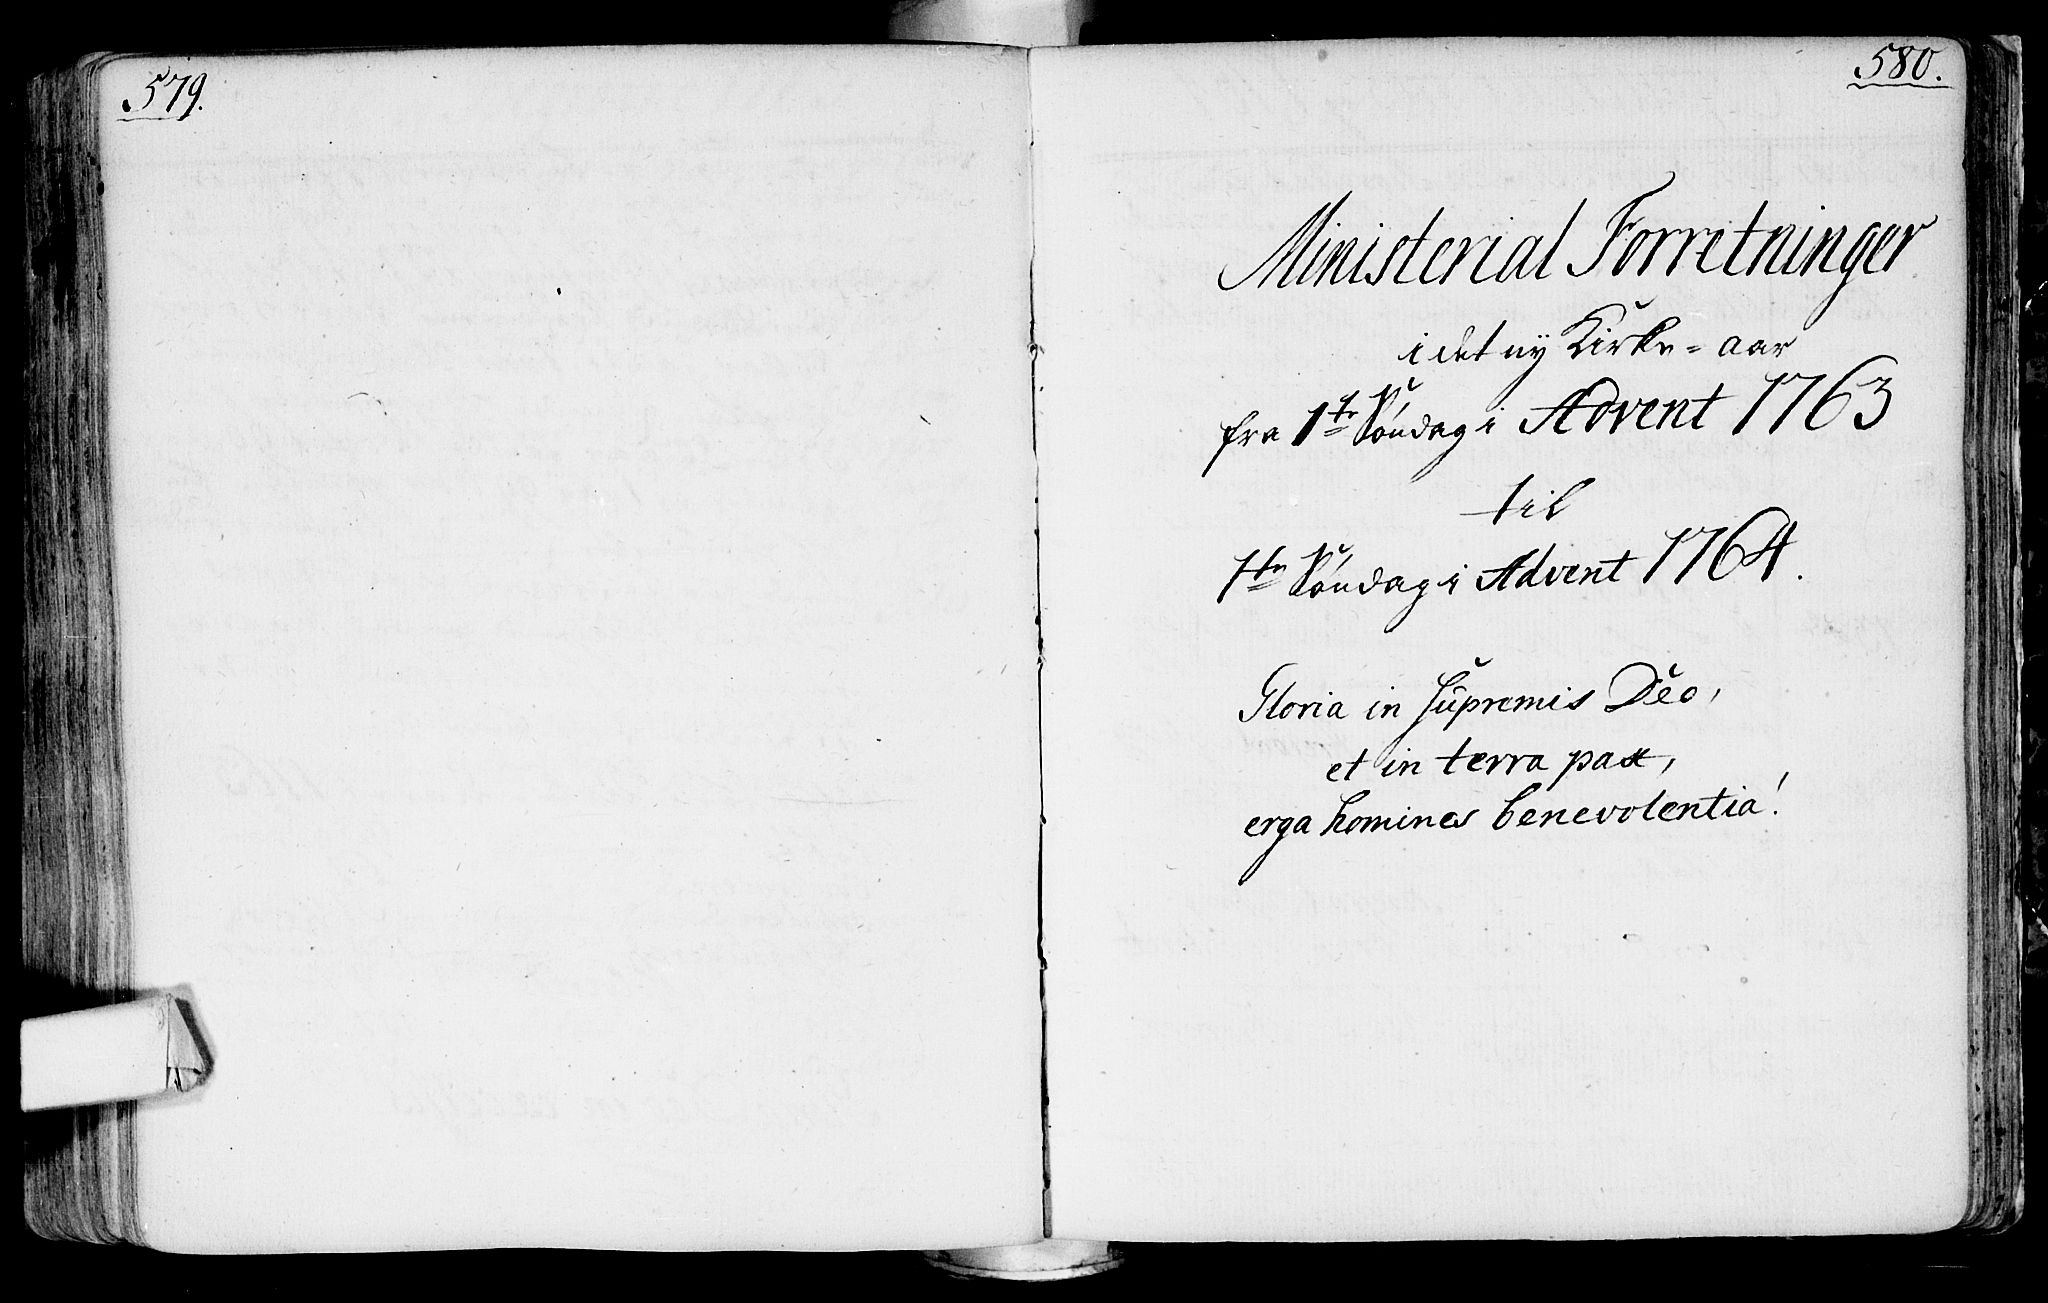 579.
580.
Ministerial Forretninger
i det ny Kirke=aar
fra 1te Søndag i Advent 1763
til
1te Søndag i Advent 1764.
Gloria in Supremis Deo,
et in terra pax,
erga homines benevolentia!